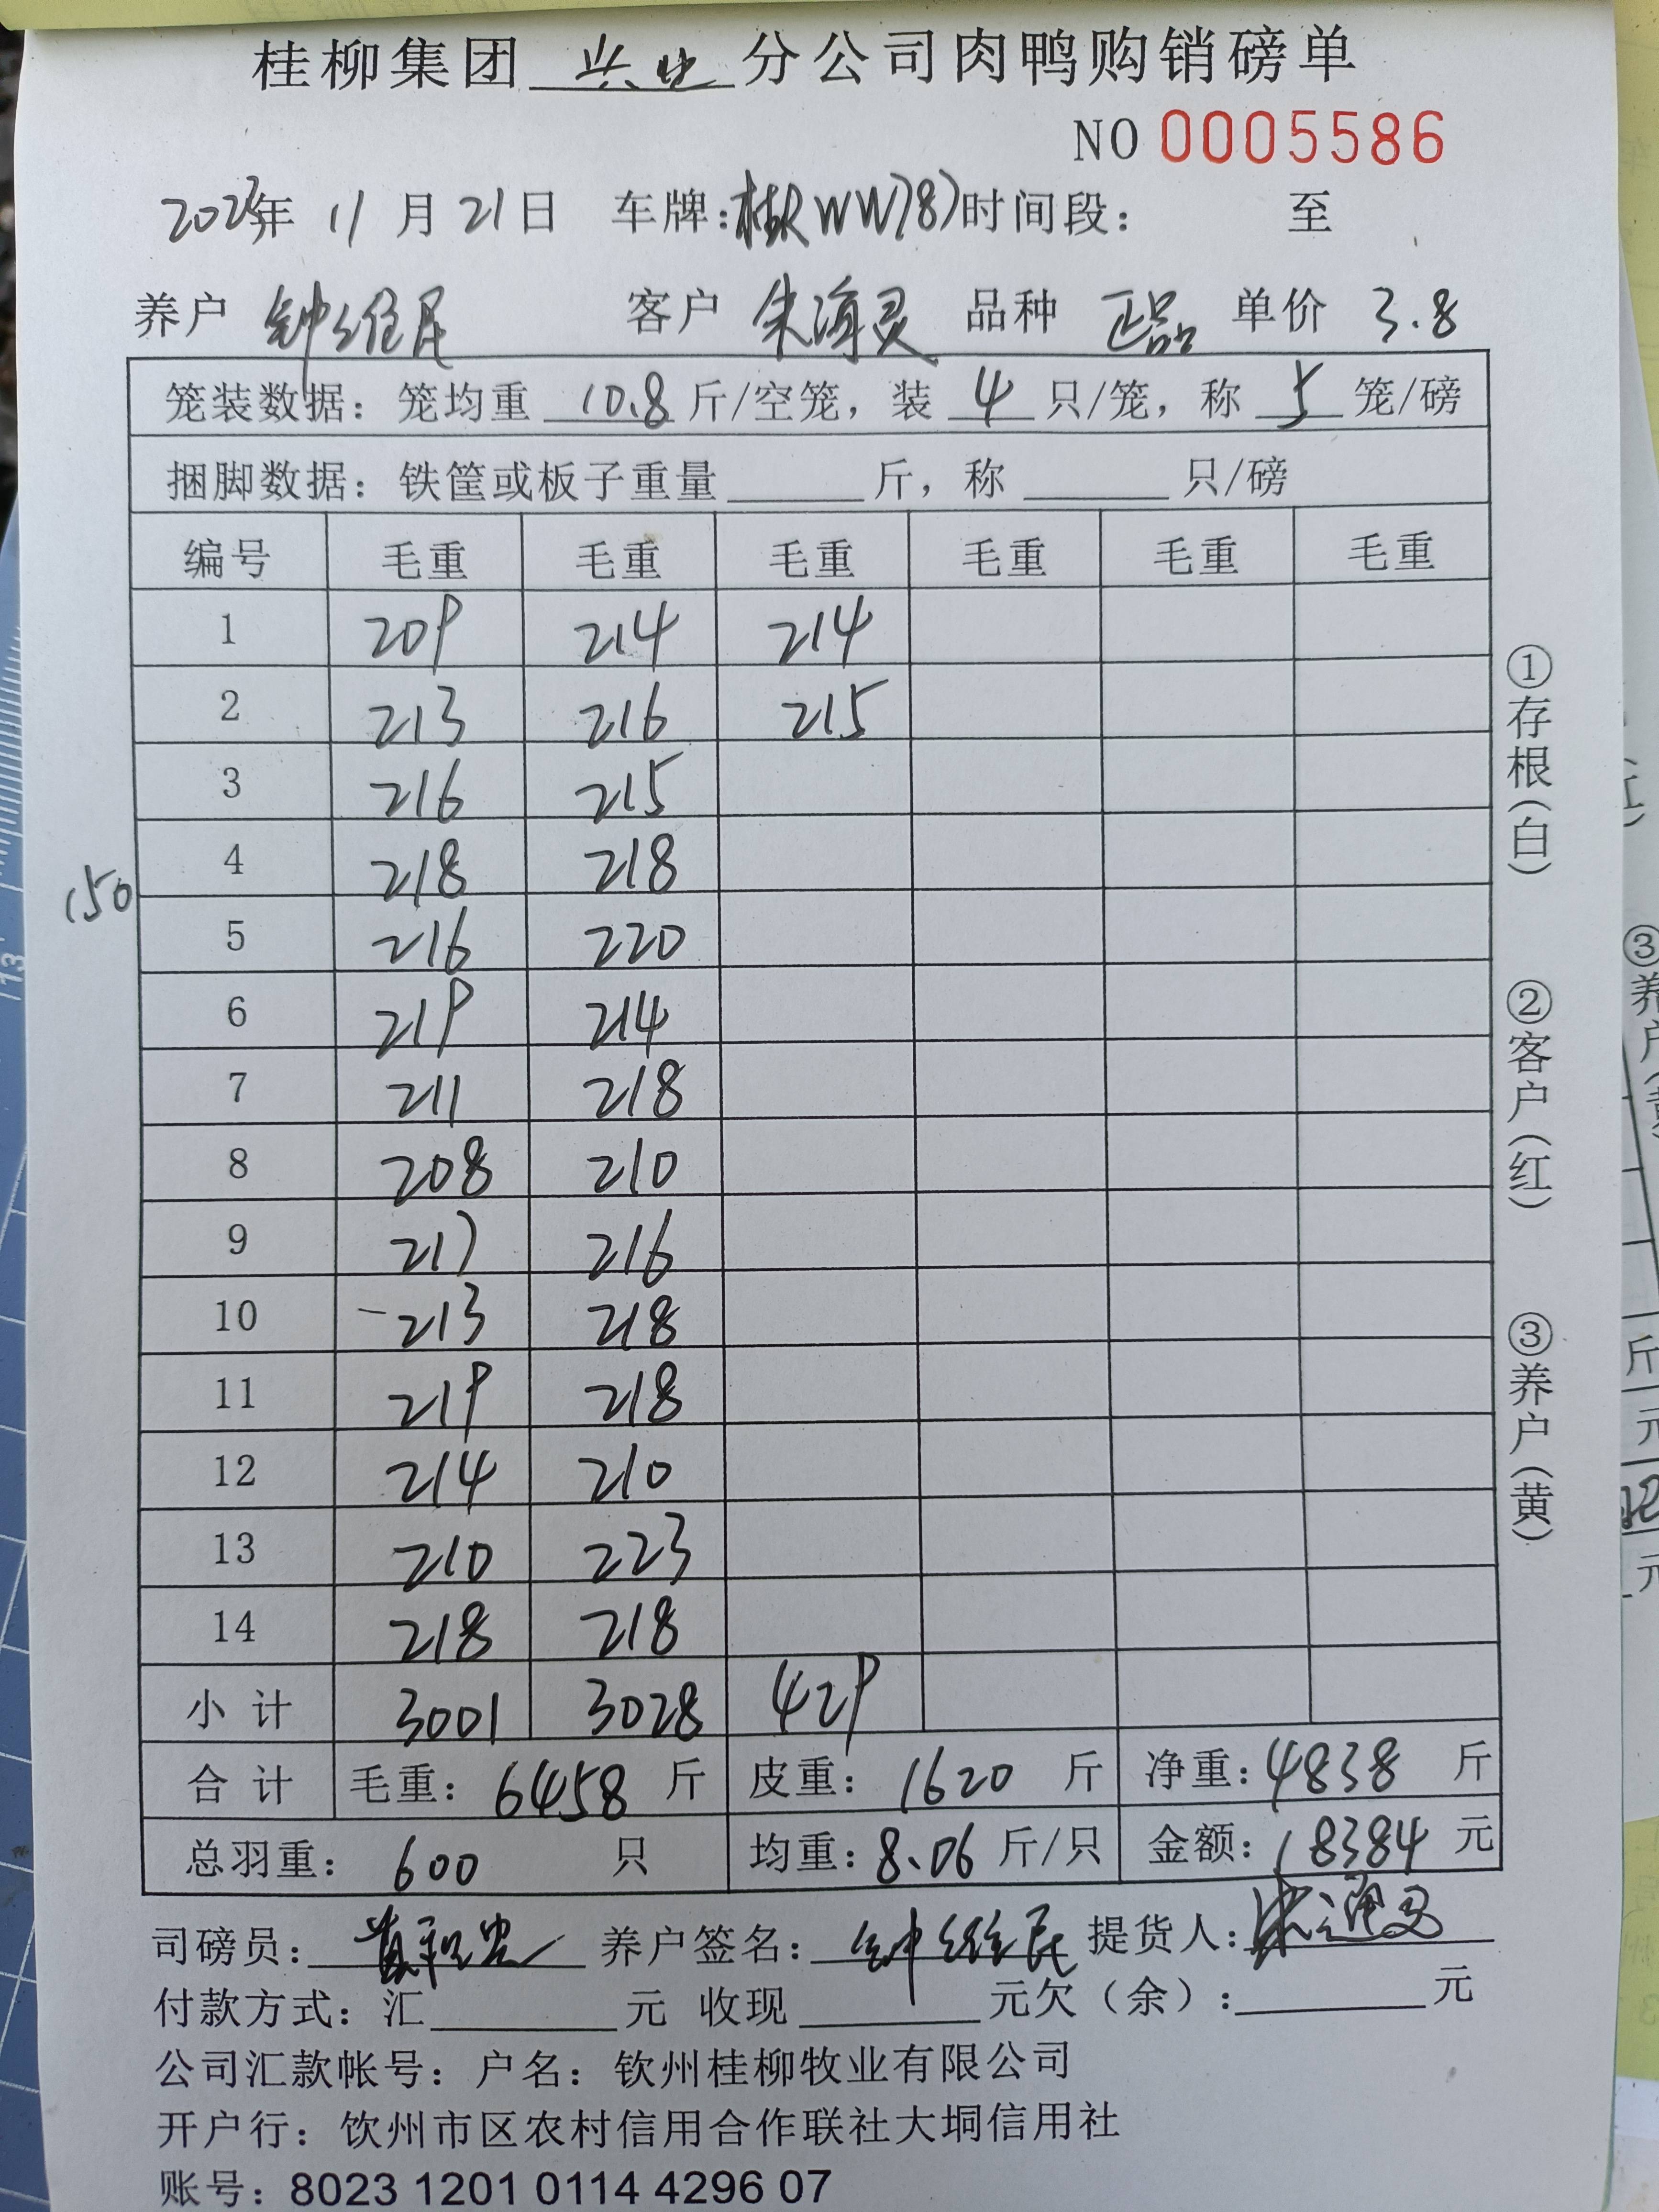 桂柳集团 兴业 分公司肉鸭购销磅单
NO 0005586
2023年 11月21日 车牌:桂R WW787 时间段: 至
养户 钟维民 客户 朱海灵 品种 正品 单价 3.8
笼装数据: 笼均重 10.8 斤/空笼, 装 4 只/笼, 称 5 笼/磅
捆脚数据: 铁筐或板子重量 斤, 称 只/磅
编号 毛重 毛重 毛重 毛重 毛重 毛重
1 209 214 214
2 213 216 215
3 216 215
4 218 218
150
5 216 220
6 219 214
7 211 218
8 208 210
9 217 216
10 -213 218
11 219 218
12 214 210
13 210 223
14 218 218
小计 3001 3028 429
合计 毛重: 6458 斤 皮重: 1620 斤 净重: 4838 斤
总羽重: 600 只 均重: 8.06 斤/只 金额: 18384 元
司磅员: 养户签名: 钟维民 提货人:
付款方式: 汇 元 收现 元欠(余): 元
公司汇款帐号: 户名: 钦州桂柳牧业有限公司
开户行: 钦州市区农村信用合作联社大垌信用社
账号: 8023 1201 0114 4296 07
①存根(白)
②客户(红)
③养户(黄)
13
③养户
斤
元
元